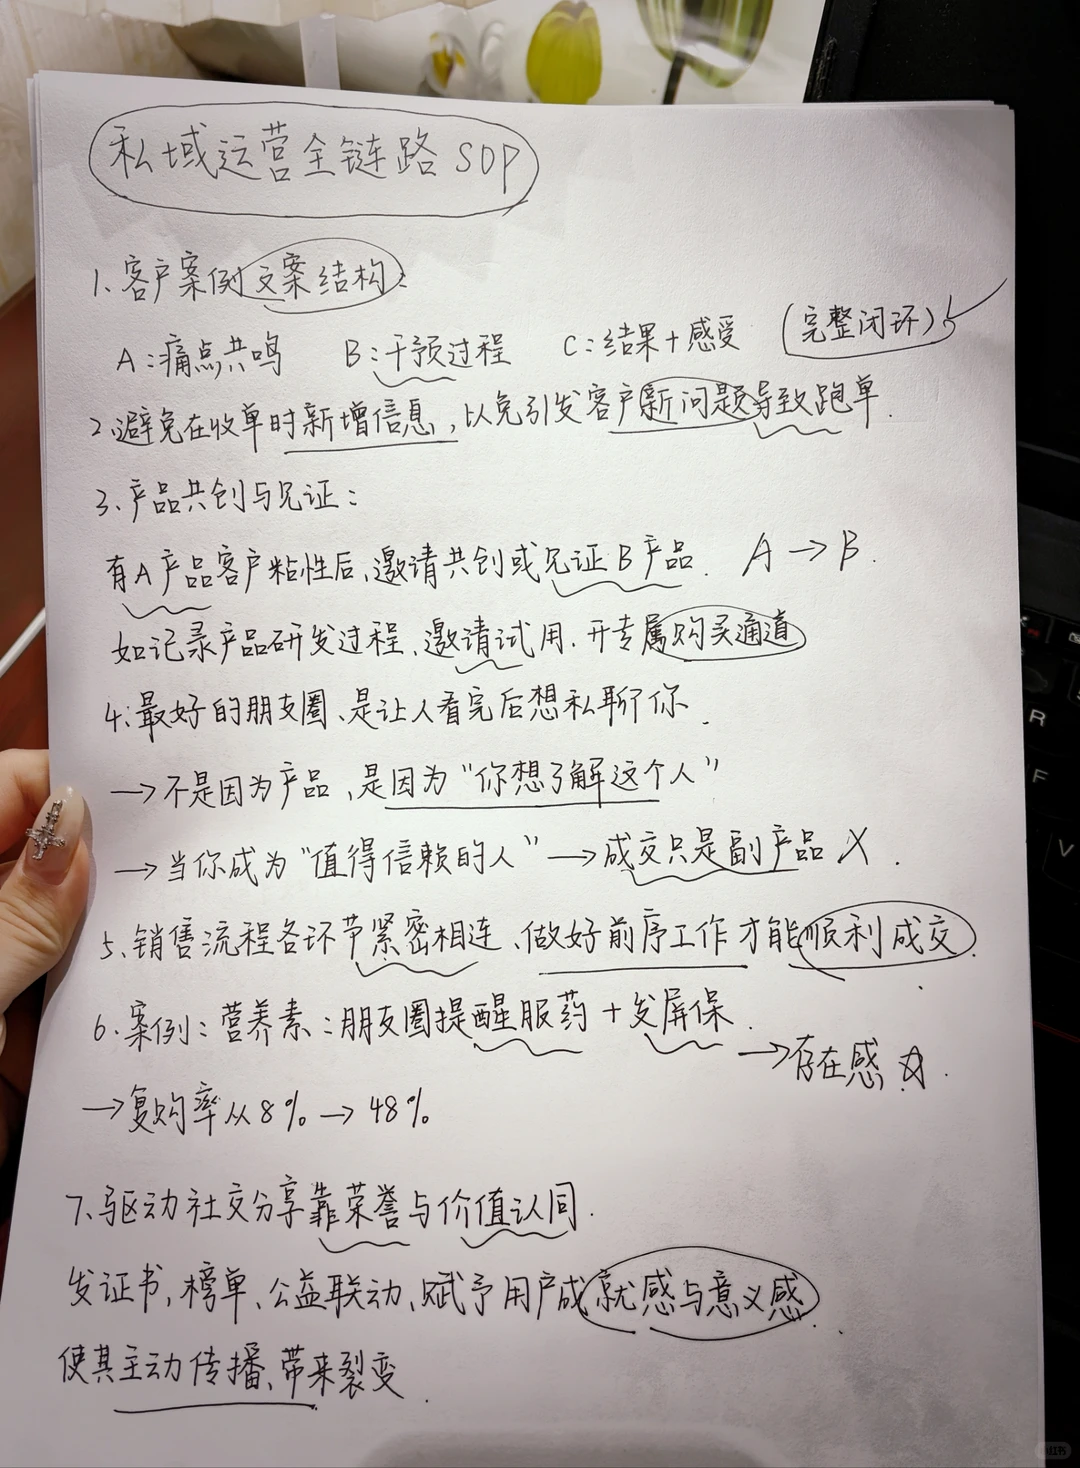 私域运营全链路SOP
1、客户案例文案结构：
A：痛点共鸣 B：干预过程 C：结果+感受 （完整闭环）
2、避免在收单时新增信息，以免引发客户新问题导致跑单.
3、产品共创与见证：
有A产品客户粘性后、邀请共创或见证B产品. A→B.
如记录产品研发过程、邀请试用.开专属购买通道
4、最好的朋友圈、是让人看完后想私聊你.
→不是因为产品，是因为“你想了解这个人”
→当你成为“值得信赖的人”→成交只是副产品 X.
5、销售流程各环节紧密相连、做好前序工作才能顺利成交.
6.案例：营养素：朋友圈提醒服药+发屏保.
→存在感 ☆.
→复购率从8%→48%
7、驱动社交分享靠荣誉与价值认同.
发证书，榜单、公益联动、赋予用户成就感与意义感.
使其主动传播、带来裂变.
R
F
V
小红书